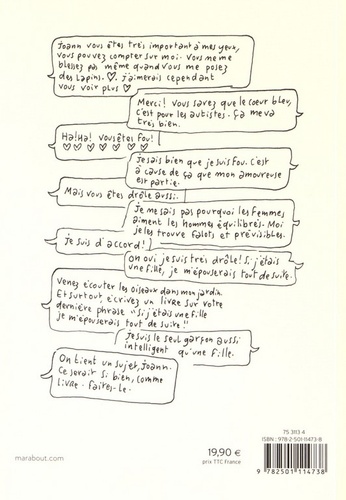 Joann vous êtes très important à mes yeux,
vous pouvez compter sur moi. Vous ne me
blessez pas même quand vous me posez
des lapins. ♡. j'aimerais cependant
vous voir plus ♡
Merci! vous savez que le cœur bleu,
c'est pour les autistes. ça me va
très bien.
Ha! Ha! vous êtes fou!
♡ ♡ ♡ ♡ ♡ ♡ ♡
Je sais bien que je suis fou. c'est
à cause de ça que mon amoureuse
est partie.
Mais vous êtes drôle aussi.
Je ne sais pas pourquoi les femmes
aiment les hommes équilibrés. Moi
je les trouve falots et prévisibles.
je suis d'accord!
oh oui je suis très drôle! Si j'étais
une fille, je m'épouserais tout de suite.
Venez écouter les oiseaux dans mon jardin.
Et surtout écrivez un livre sur votre
dernière phrase "Si j'étais une fille
je m'épouserais tout de suite!"
je suis le seul garçon aussi
intelligent qu'une fille.
On tient un sujet, Joann.
Ce serait si bien, comme
livre. Faites-le.
75 3113 4
ISBN : 978-2-501-11473-8
19,90 €
prix TTC France
marabout.com
9 782501 114738